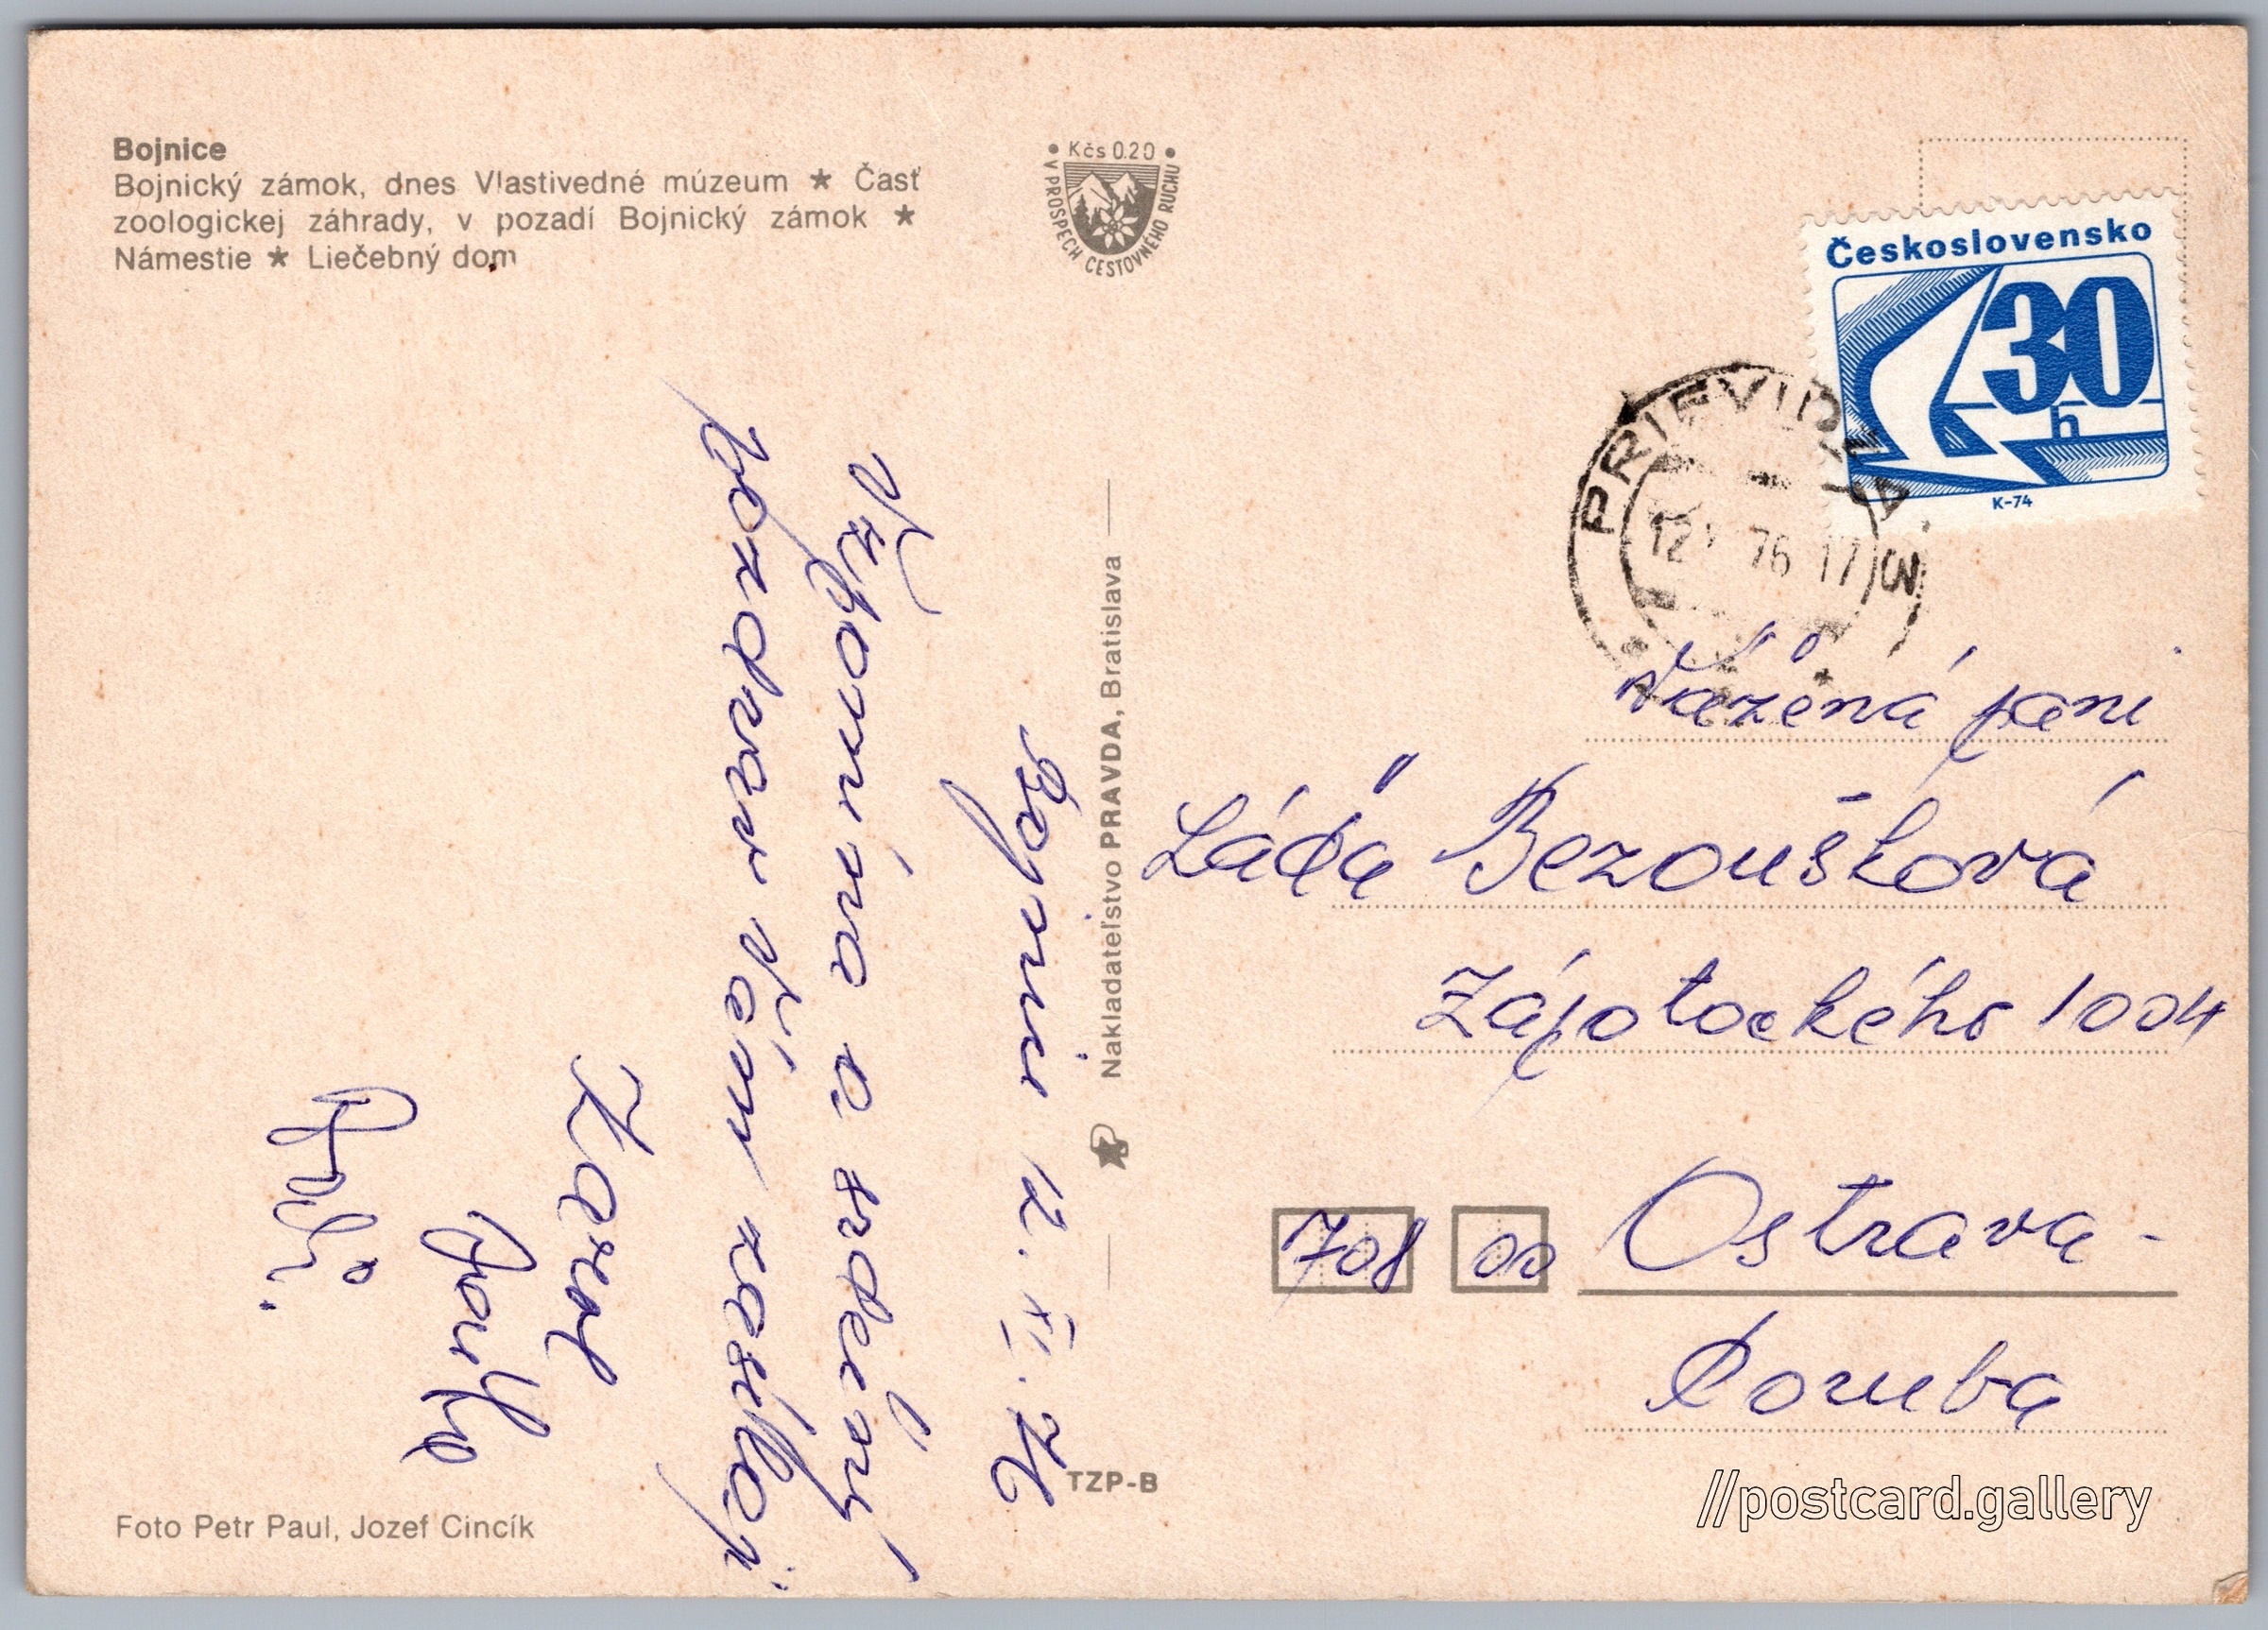 Bojnice
Bojnický zámok, dnes Vlastivedné múzeum ★ Časť
zoologickej záhrady, v pozadí Bojnický zámok ★
Námestie ★ Liečebný dom
Kčs 0.20
V PROSPECH CESTOVNÉHO RUCHU
Československo
30
h
K-74
PRIEVIDZA 3
12 76 17
Bojnice 12. XI. 76
a srdečný
pozdrav Vám zasílají
Karel
Nakladateľstvo PRAVDA, Bratislava
Vážená paní
Láďa Bezoušková
Zápotockého 1004
708 00 Ostrava-
Poruba
TZP-B
Foto Petr Paul, Jozef Cincík
//postcard.gallery